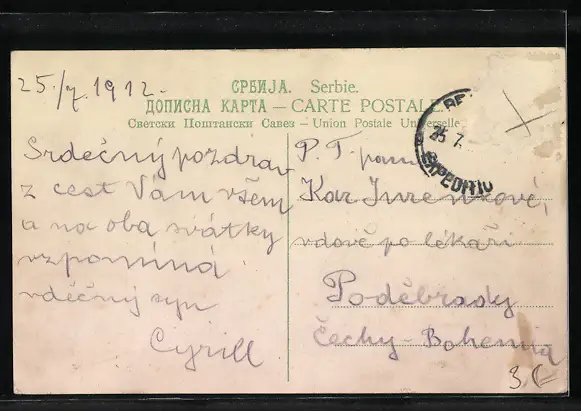 25./7. 1912.
СРБИЈА. Serbie.
ДОПИСНА КАРТА — CARTE POSTALE.
Светски Поштански Савез – Union Postale Universelle
25 7.
EXPEDITIO
Srdečný pozdrav
z cest Vám všem
a na oba svátky
vzpomíná
vděčný syn
Cyrill
P. T. paní
Kar.
vdově po lékaři
Poděbrady
Čechy - Bohemia